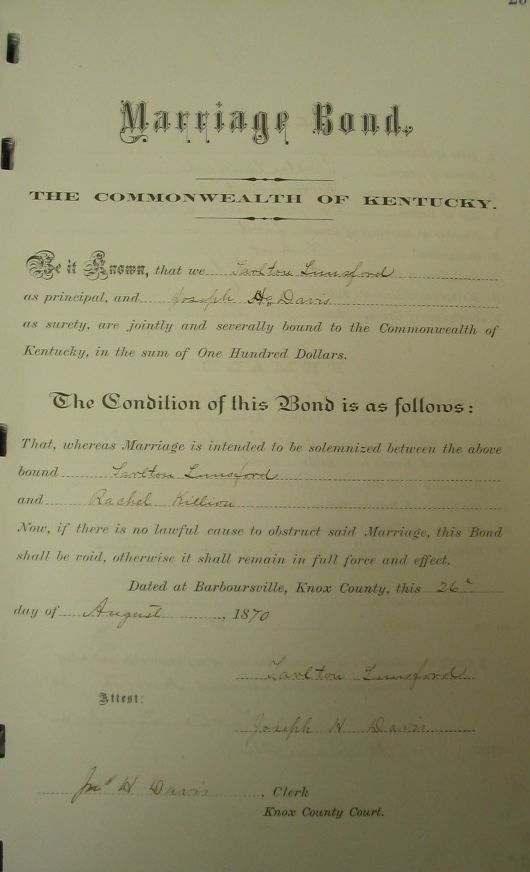 Marriage Bond.
THE COMMONWEALTH OF KENTUCKY.
Be it Known, that we Tarlton Lunsford
as principal, and Joseph H. Davis
as surety, are jointly and severally bound to the Commonwealth of
Kentucky, in the sum of One Hundred Dollars.
The Condition of this Bond is as follows:
That, whereas Marriage is intended to be solemnized between the above
bound Tarlton Lunsford
and Rachel Killion
Now, if there is no lawful cause to obstruct said Marriage, this Bond
shall be void, otherwise it shall remain in full force and effect.
Dated at Barboursville, Knox County, this 26
day of August, 1870
Tarlton Lunsford
Attest:
Joseph H Davis
H Davis, Clerk
Knox County Court.